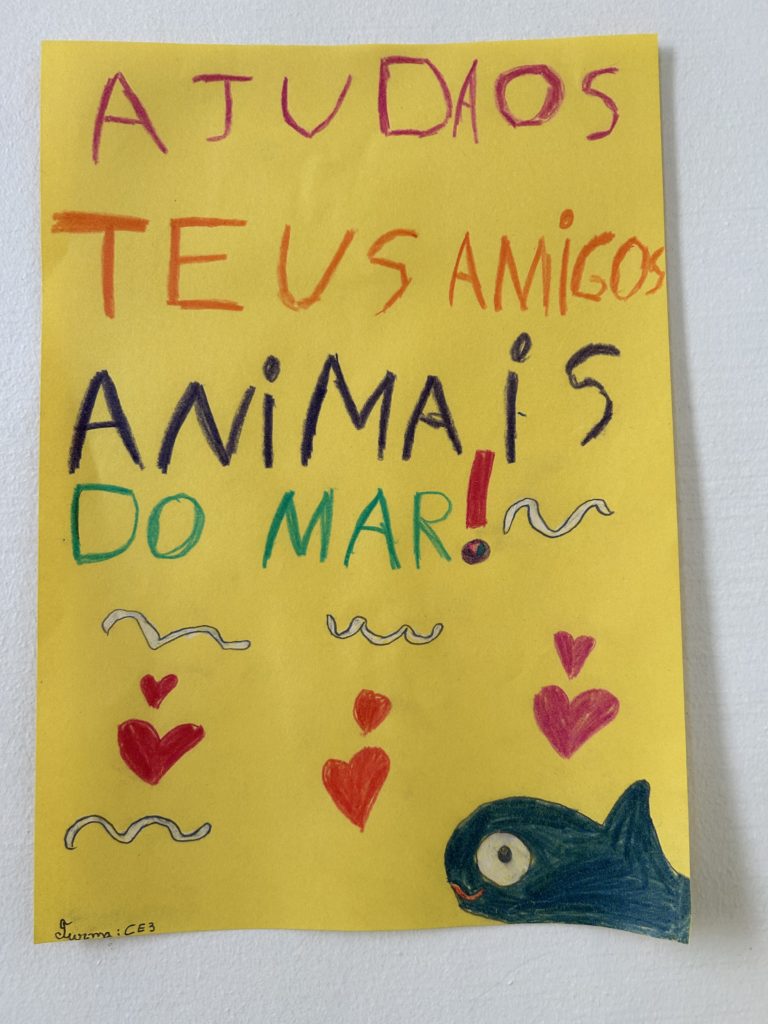 AJUDA OS
TEUS AMIGOS
ANiMAiS
DO MAR!
Turma: CE3